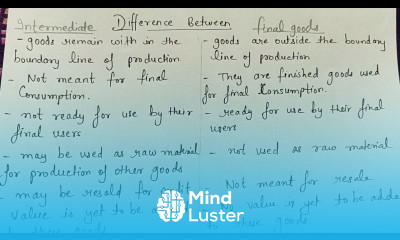 Difference Between
Intermediate
final goods
- goods remain with in the
boundary line of production
- Not meant for final
Consumption.
- not ready for use by their
final users
- may be used as raw material
for production of other goods
- may be resold for
value is yet to be
- goods are outside the boundary
line of production
- They are finished goods used
for final Consumption.
- ready for use by their final
users
- not used as raw material
Not meant for resale
No value is yet to be added
to these goods
Mind
Luster